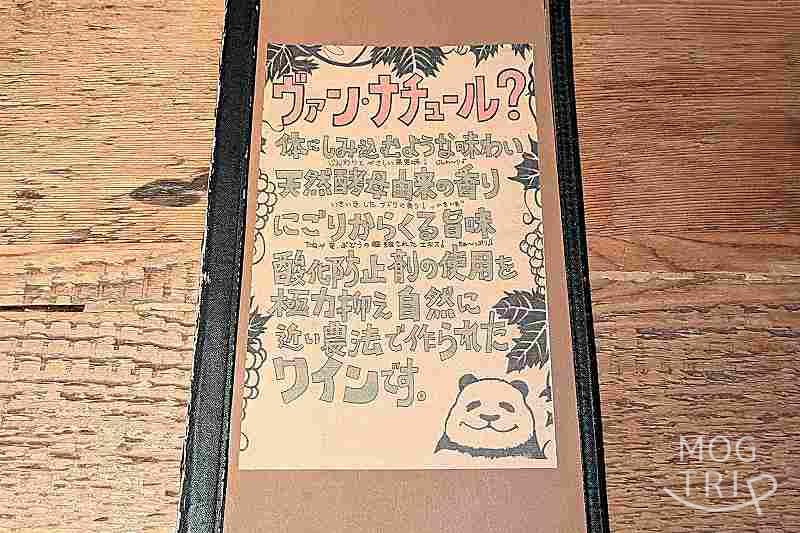 ヴァン・ナチュール?
体にしみ込むような味わい
天然酵母由来の香り
にごりからくる旨味
酸化防止剤の使用を
極力抑え自然に
近い農法で作られた
ワインです。
MOG
TRIP